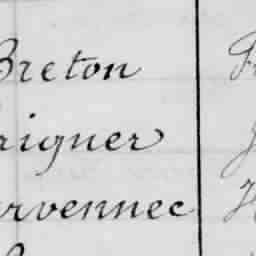 Breton
rigner
rvennec